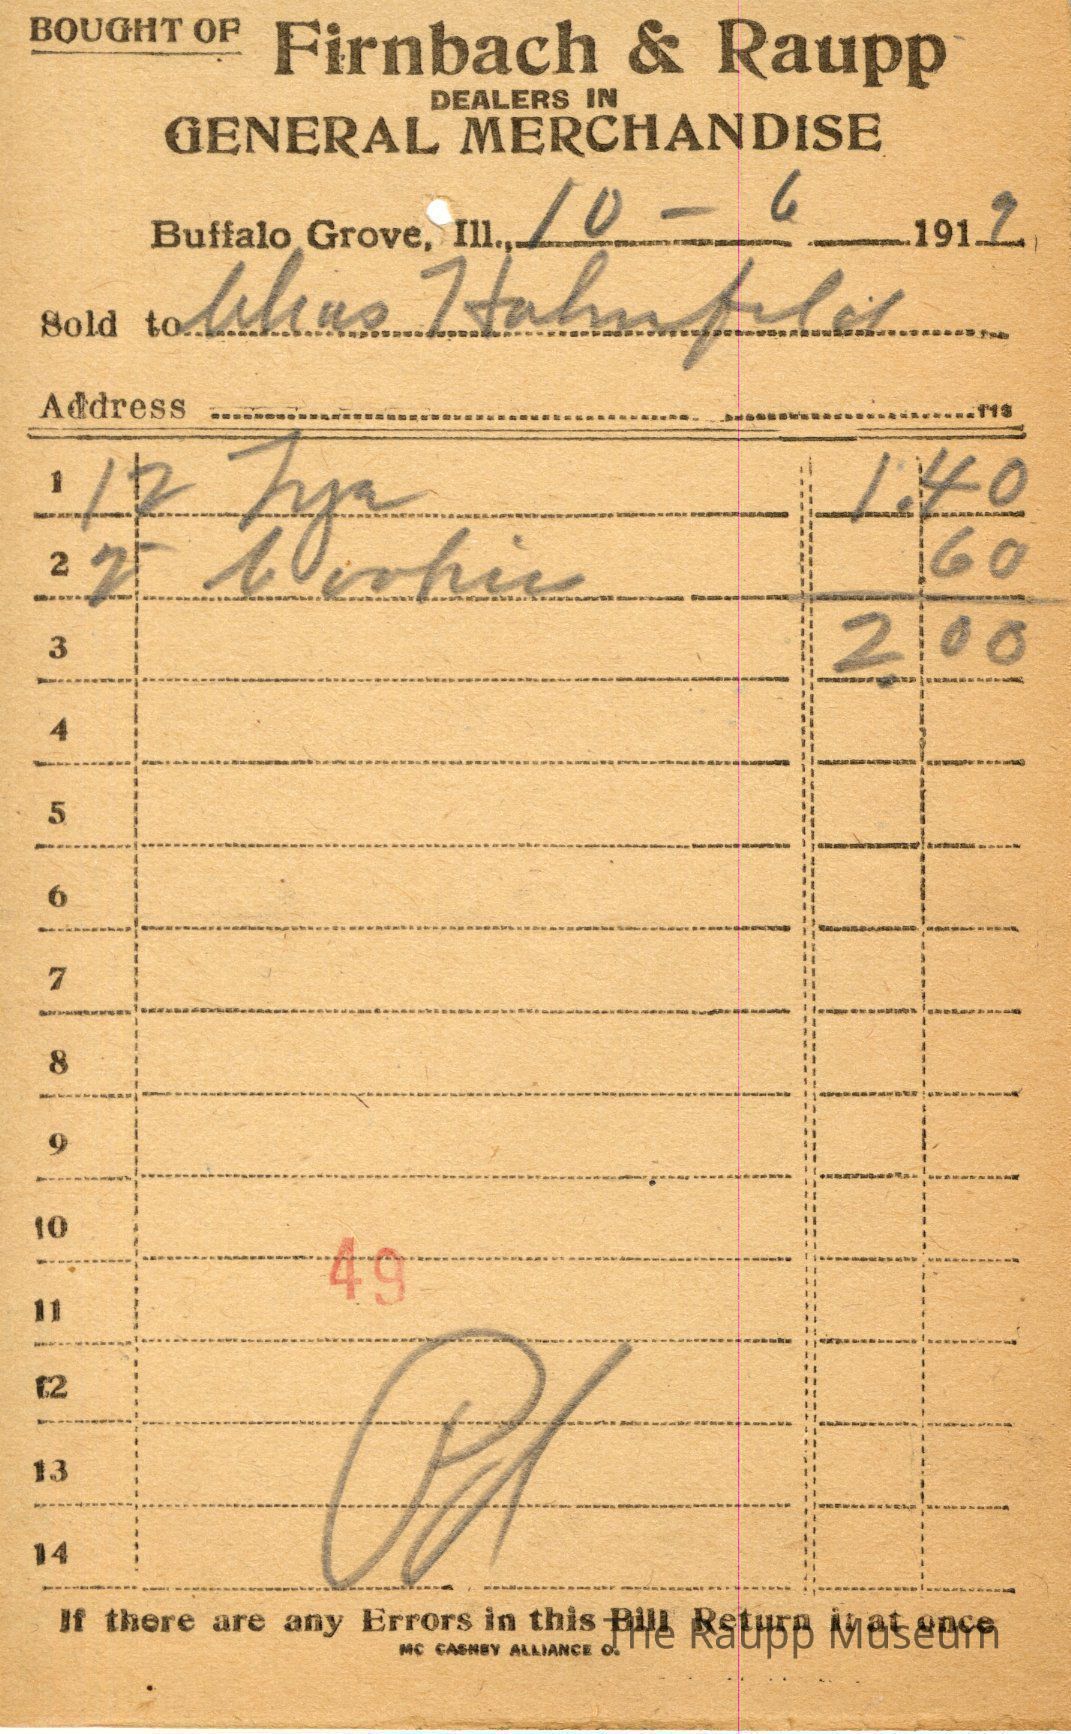 BOUGHT OF Firnbach & Raupp
DEALERS IN
GENERAL MERCHANDISE
Buffalo Grove, Ill., 10 - 6 1919
Sold to Chas Hahnfeld
Address 113
1 12 1.40
2 2 Cookies 60
3 2 00
4
5
6
7
8
9
10
49
11
12
13
14
Pd
If there are any Errors in this Bill Return it at once
The Raupp Museum
MC CASKEY ALLIANCE O.